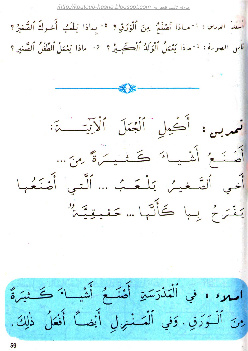 أسئلة الدرس : ١- ماذا أصنع من الورق ؟ ٢- بماذا يلعب أخوك الصغير ؟
١- ماذا يفعل الولد الكبير ؟ ٢- ماذا يفعل الطفل الصغير ؟
تمرين : أكمل الجمل الآتية :
أصنع أشياء كثيرة من ...
أخي الصغير يلعب ... التي أصنعها
يفرح بها كأنها ... حقيقية "
إملاء : في المدرسة أصنع أشياء كثيرة
من الورق . وفي المنزل أيضا أفعل ذلك .
59